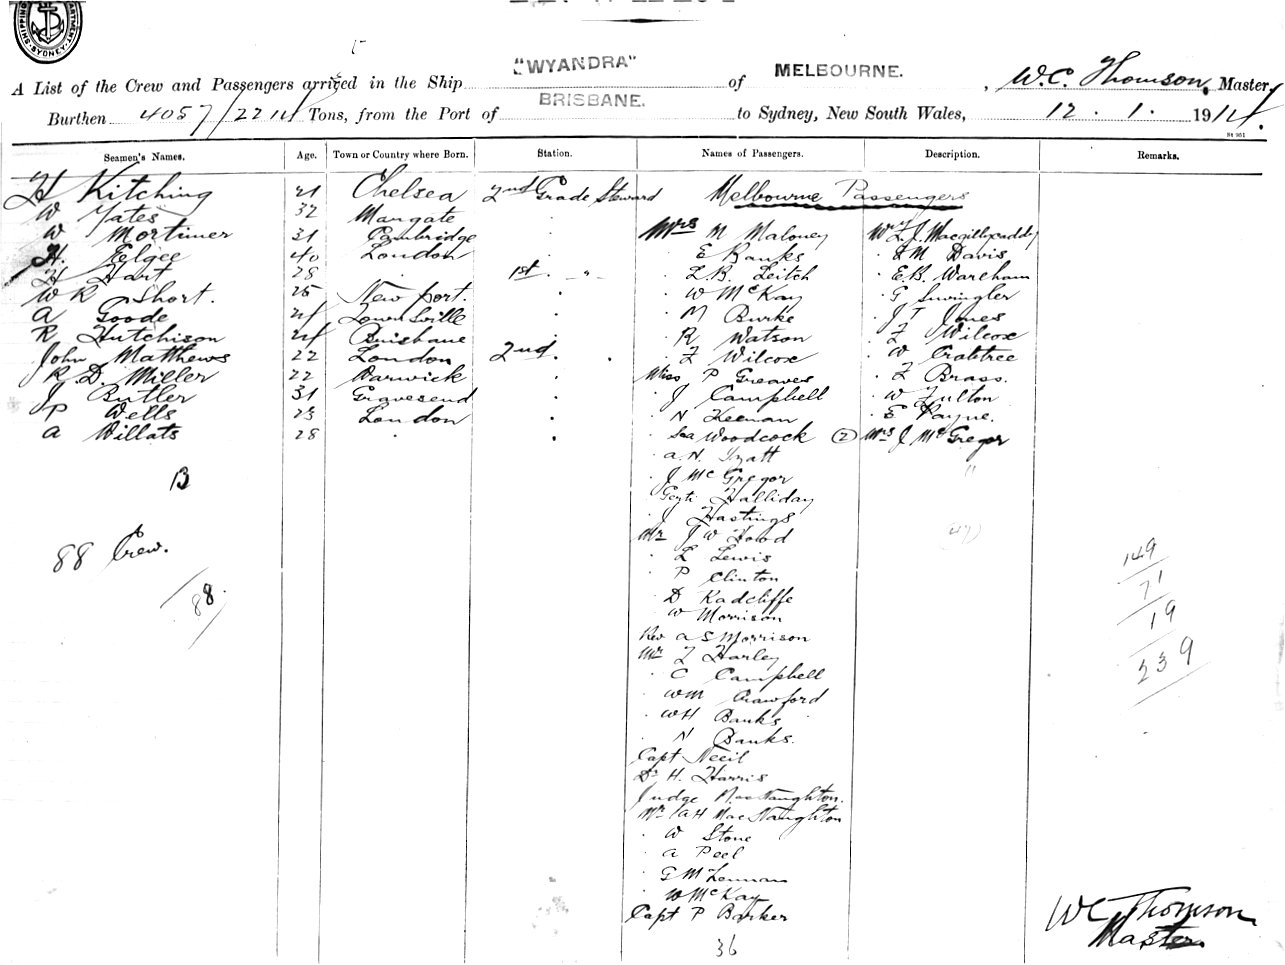 SHIPPING DEPARTMENT SYDNEY
A List of the Crew and Passengers arrived in the Ship "WYANDRA" of MELBOURNE. , W.C. Thomson, Master,
Burthen 4057/2214 Tons, from the Port of BRISBANE. to Sydney, New South Wales, 12 . 1 . 1914.
St 951
Seamen's Names. Age. Town or Country where Born. Station. Names of Passengers. Description. Remarks.
H Kitching 21 Chelsea 2nd Grade Steward Melbourne Passengers
W Yates 32 Margate
W Mortimer 31 Cambridge Mrs M Maloney Mr L. J. Macgillycuddy
H. Eelgee 40 London E Banks F M Davis
H Hart 28 1st. - " - L. B. Leitch E. B. Wareham
W R Short. 25 New port. W McKay G Swingler
A Goode 24 Townsville M Burke J T Jones
R Hutchison 24 Brisbane R Watson F Wilcox
John Matthews 22 London 2nd F Wilcox W Crabtree
R. D. Miller 22 Warwick Miss P Greaves F Brass.
J Butler 31 Gravesend J Campbell W Fulton
P Wells 23 London N Keenan E Payne.
A Willats 28 Woodcock (2) Mrs J McGregor
A. N.
J McGregor
Halliday
B J Hastings
Mr J W Hood
88 Crew. L Lewis 149
P Clinton 71
88. D Radcliffe 19
W Morrison 239
Rev A S Morrison
Mr F Harley
C Campbell
WM Crawford
WH Banks
N Banks.
Capt Necil
Dr H. Harris
Judge MacNaughton.
Mr A H MacNaughton
W Stone
A Peel
G M Lennan
W McKay
Capt P Barker WC Thomson
36 Master.